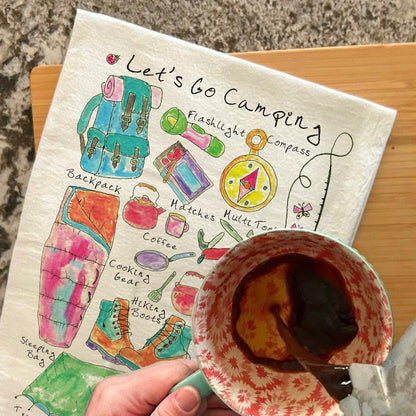 Let's Go Camping
Flashlight
Compass
Backpack
Matches
Multi Tool
Coffee
Cooking
Gear
Hiking
Boots
Sleeping
Bag